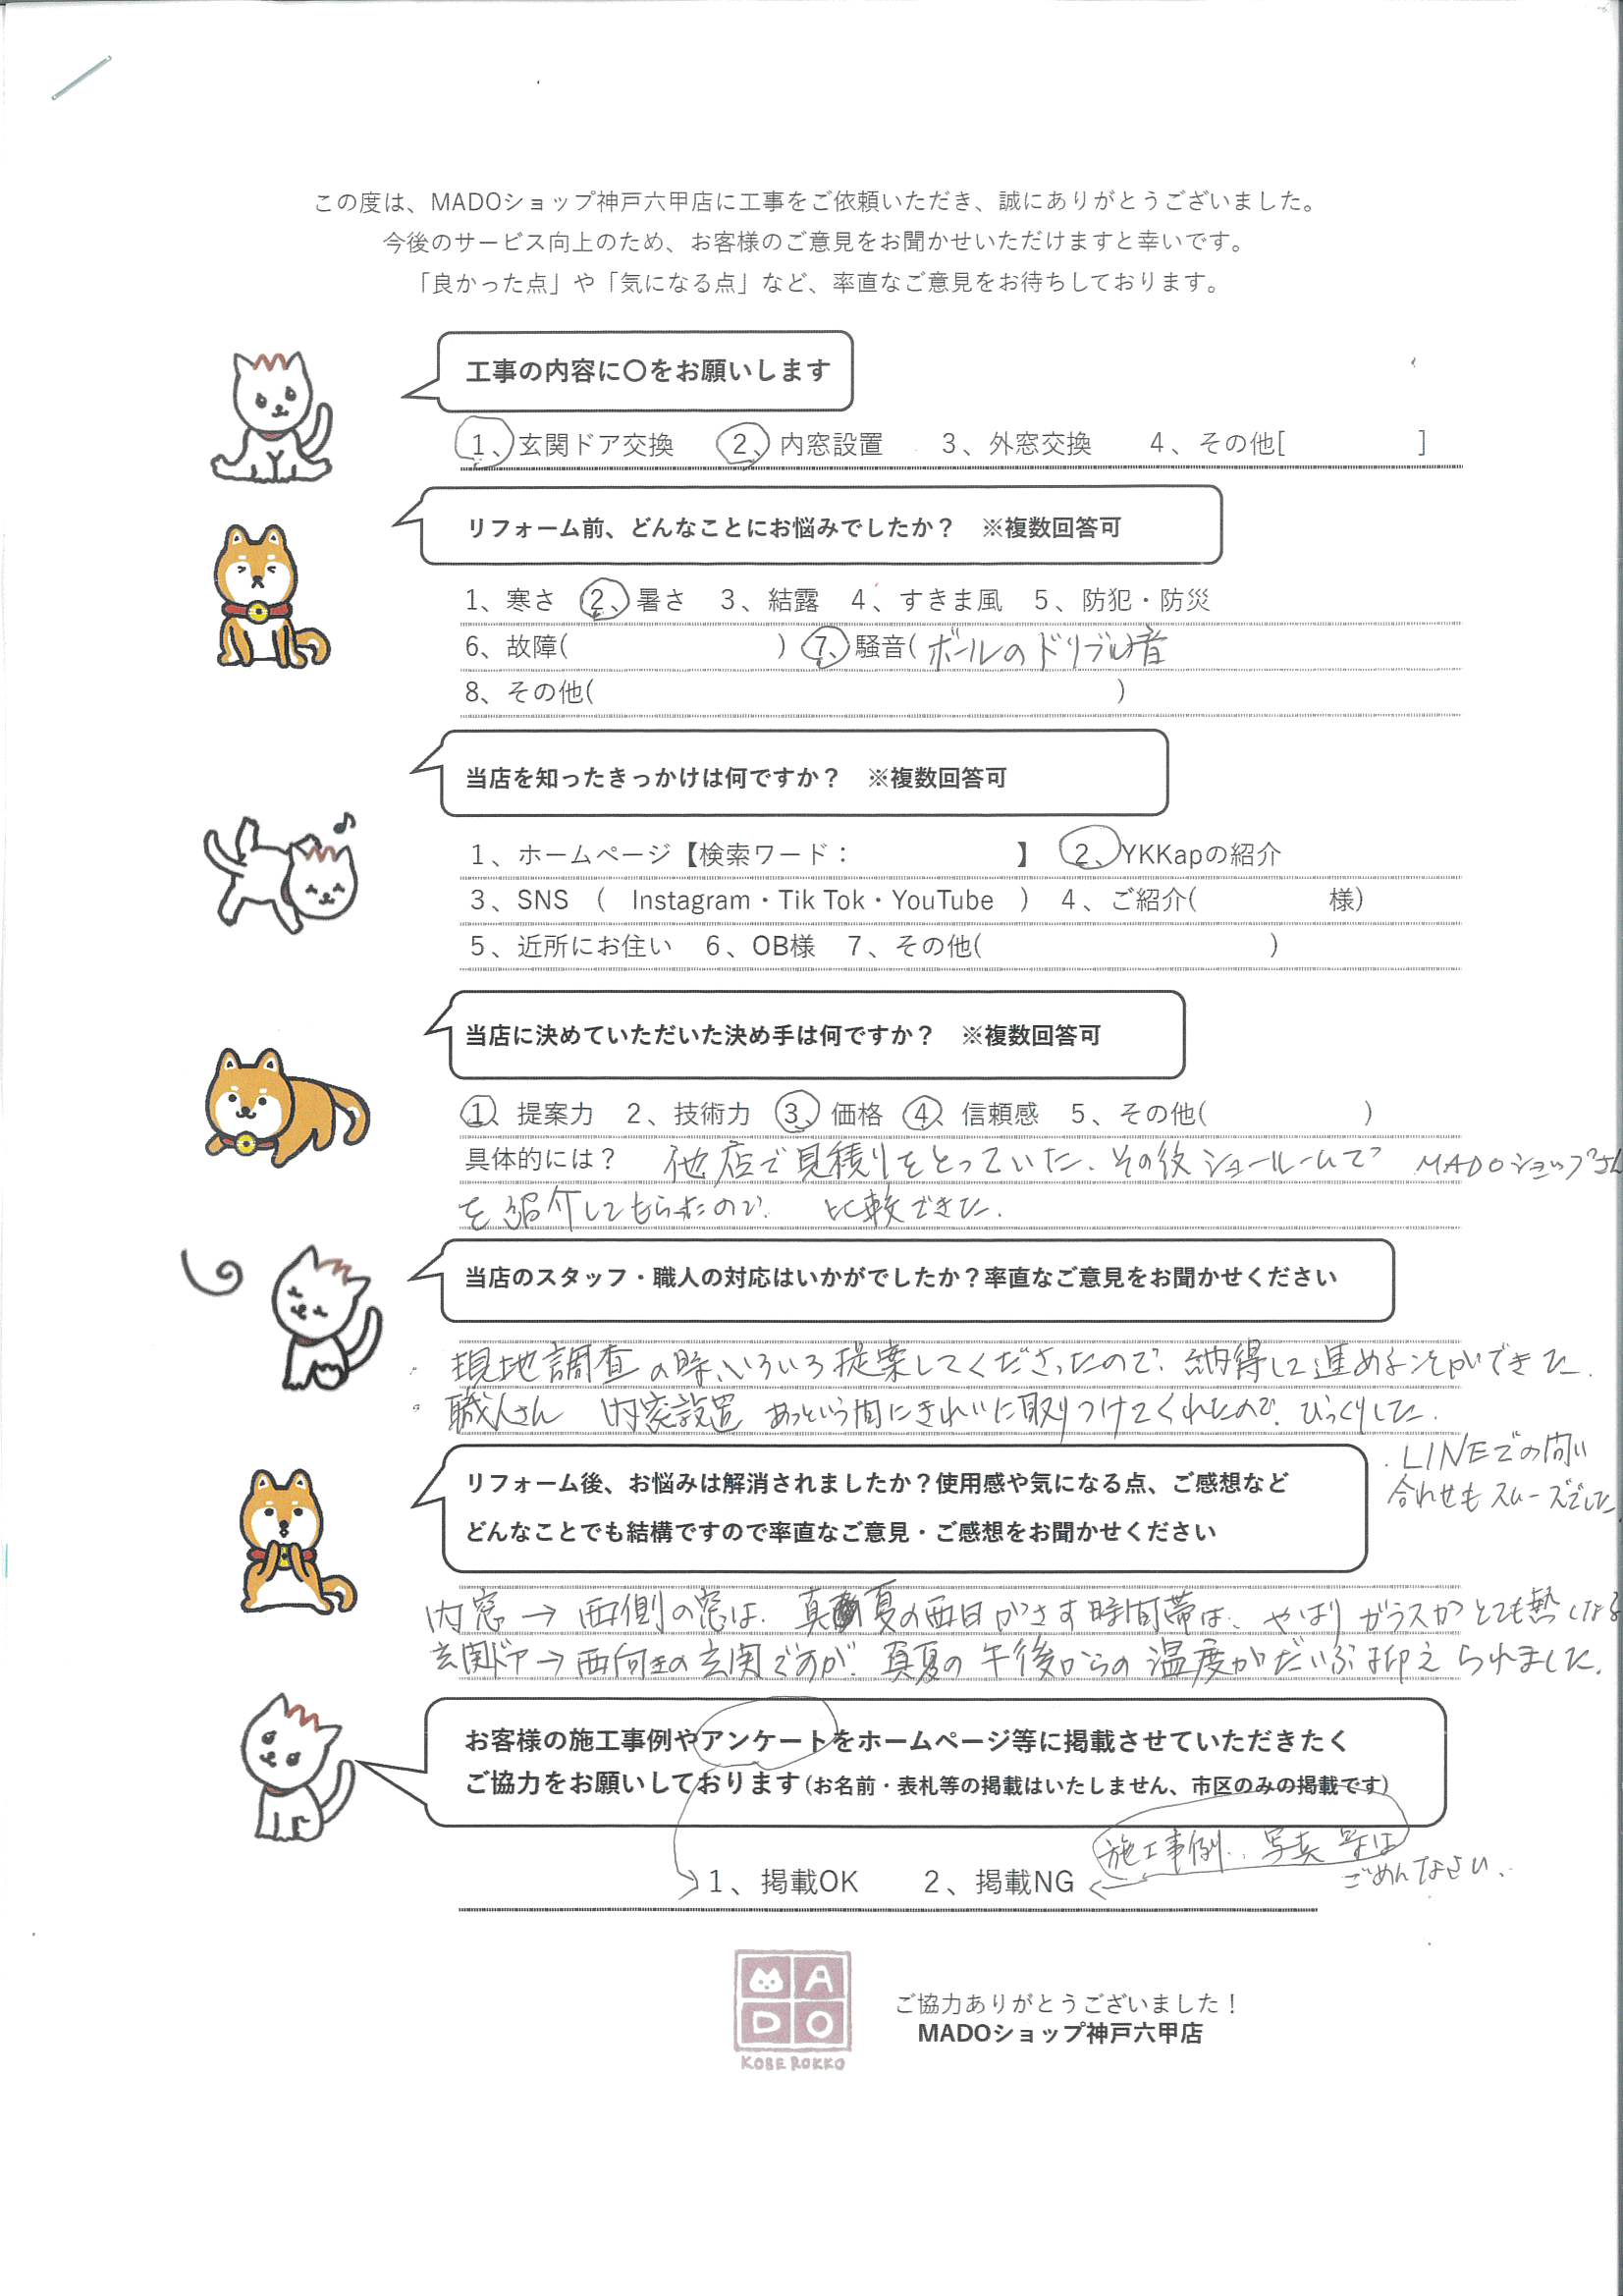 この度は、MADOショップ神戸六甲店に工事をご依頼いただき、誠にありがとうございました。
今後のサービス向上のため、お客様のご意見をお聞かせいただけますと幸いです。
「良かった点」や「気になる点」など、率直なご意見をお待ちしております。
工事の内容に〇をお願いします
1、玄関ドア交換　2、内窓設置　3、外窓交換　4、その他[　　　]
リフォーム前、どんなことにお悩みでしたか？　※複数回答可
1、寒さ　2、暑さ　3、結露　4、すきま風　5、防犯・防災
6、故障(　　　)　7、騒音( ボールのドリブル音
8、その他(　　　)
当店を知ったきっかけは何ですか？　※複数回答可
1、ホームページ【検索ワード：　　　】　2、YKKapの紹介
3、SNS　(　Instagram・Tik Tok・YouTube　)　4、ご紹介(　　　様)
5、近所にお住い　6、OB様　7、その他(　　　)
当店に決めていただいた決め手は何ですか？　※複数回答可
1、提案力　2、技術力　3、価格　4、信頼感　5、その他(　　　)
具体的には？　他店で見積りをとっていた、その後ショールームで MADOショップさん
を紹介してもらったので、比較できた。
当店のスタッフ・職人の対応はいかがでしたか？率直なご意見をお聞かせください
・現地調査の時、いろいろ提案してくださったので、納得して進めることができた。
・職人さん 内窓設置 あっという間にきれいに取りつけてくれたので、びっくりした。
・LINEでの問い
合わせもスムーズでした
リフォーム後、お悩みは解消されましたか？使用感や気になる点、ご感想など
どんなことでも結構ですので率直なご意見・ご感想をお聞かせください
内窓→西側の窓は、真夏の西日がさす時間帯は、やはりガラスがとても熱くなる
玄関ドア→西向きの玄関ですが、真夏の午後からの温度がだいぶ抑えられました。
お客様の施工事例やアンケートをホームページ等に掲載させていただきたく
ご協力をお願いしております(お名前・表札等の掲載はいたしません、市区のみの掲載です)
施工事例、写真等は
ごめんなさい。
1、掲載OK　2、掲載NG
MADO
KOBE ROKKO
ご協力ありがとうございました！
MADOショップ神戸六甲店